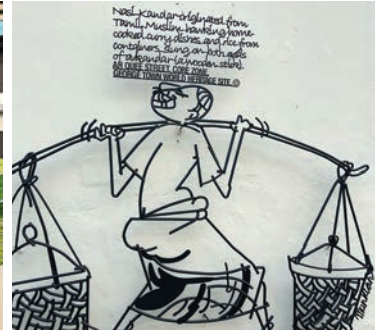 Nasi Kandar originated from
Tamil Muslim hawking home-
cooked curry dishes and rice from
containers, slung on both ends
of a kandar (a wooden stick).
AH QUEE STREET, CORE ZONE,
GEORGE TOWN WORLD HERITAGE SITE. ©